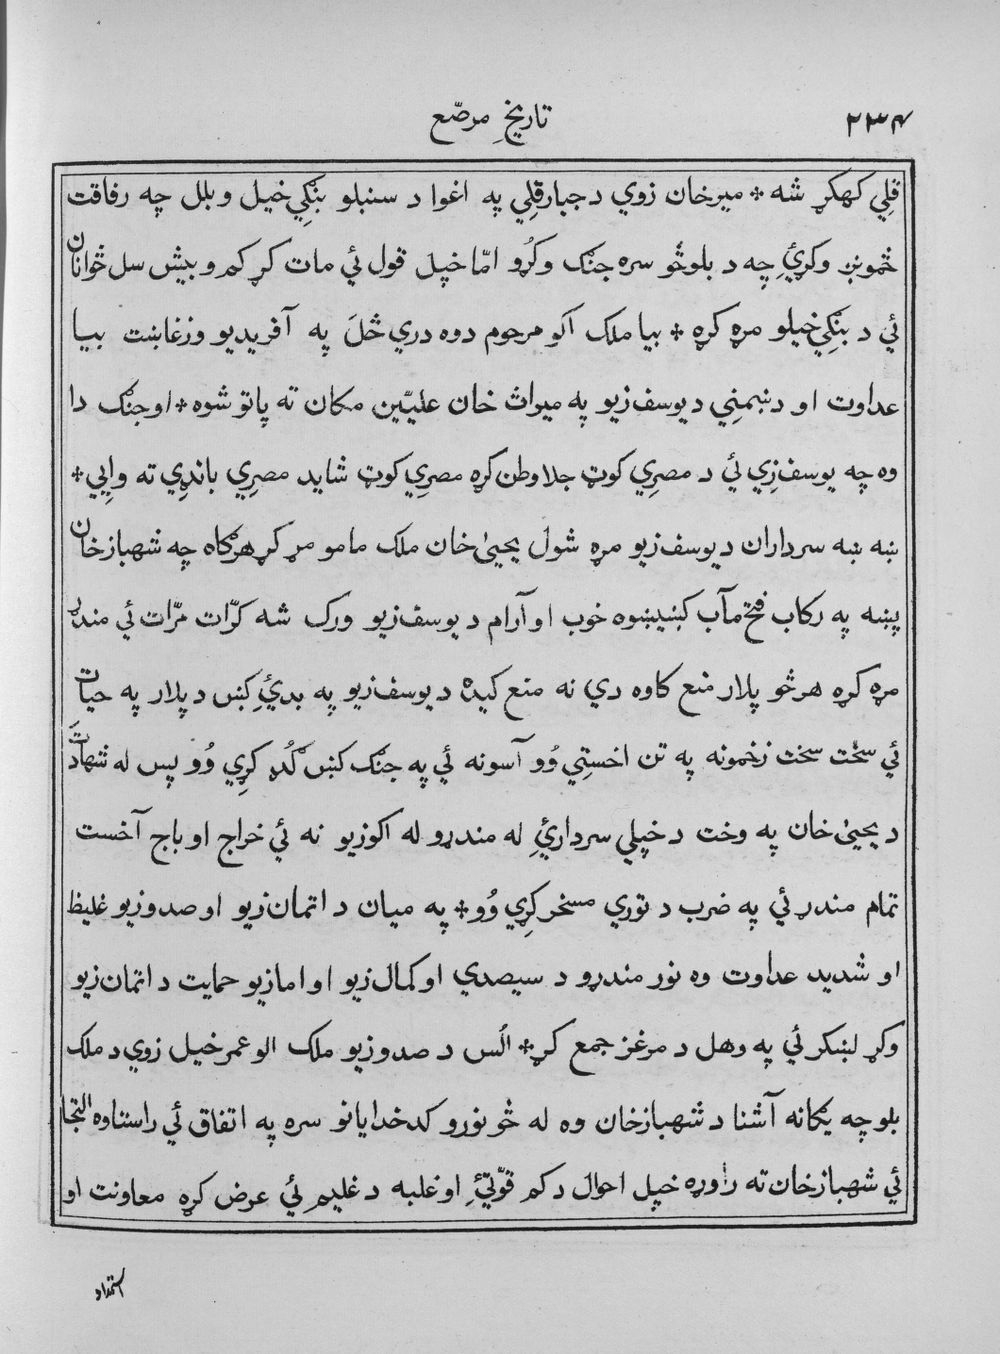 ۲۳۴
تاریخِ مرصّع
قلِي کهکړ شه * میرخان زوي د جبارقلِي په اغوا د سنبلو بنکِي‌خیل و بلل چه رفاقت
څموښ وکړئِ چه د بلوڅو سره جنک وکړُو امّا خپل قول ئي مات کړ کم و بیش سل ځوانان
ئي د بنکِي‌خیلو مړه کړه * بیا ملک اکو مرحوم دوه دري ځلَ په آفریدیو وزغابنت بیا
عداوت او دښمنِي د یوسف‌زیو په میراث خان علیّین مکان ته پاتو شوه * او جنک دا
وه چه یوسف‌زِي ئي د مصرِي کوټ جلاوطن کړه مصرِي کوټ شاید مصرِي باندِي ته وایِي *
ښه ښه سرداران د یوسف‌زیو مړه شول یحییٰ خان ملک مامو مړ کړ هرکاه چه شهبازخان
پښه په رکاب فتح‌مآب کښیښوه خوب او آرام د یوسف‌زیو ورک شه کرّات مرّات ئي مندړ
مړه کړه هرڅو پلار منع کاوه دي نه منع کیدهٔ د یوسف‌زیو په بدئِ کښ د پلار په حیات
ئي سخت سخت زخمونه په تن اخستِي وُو آسونه ئي په جنک کښ کُډ کړِي وُو پس له شهادتَ
د یحییٰ خان په وخت د خپلي سردارئِ له مندړو له اکوزیو نه ئي خراج او باج آخست
تمام مندړ ئي په ضرب د توري مسخر کړِي وُو * په میان د اتمان‌زیو او صدوزیو غلیظ
او شدید عداوت وه نور مندړو د سیصدي او کمال‌زیو او امازیو حمایت د اتمان‌زیو
وکړ لښکر ئي په وهل د مرغز جمع کړ * الُس د صدوزیو ملک الو عمرخیل زوي د ملک
بلو چه یکانه آشنا د شهبازخان وه له څو نورو کدخدایانو سره په اتفاق ئي راستاوه التجا
ئي شهبازخان ته راوړه خپل احوال د کم قوّتئِ او غلبه د غلیم ئي عرض کړه معاونت او
استمداد